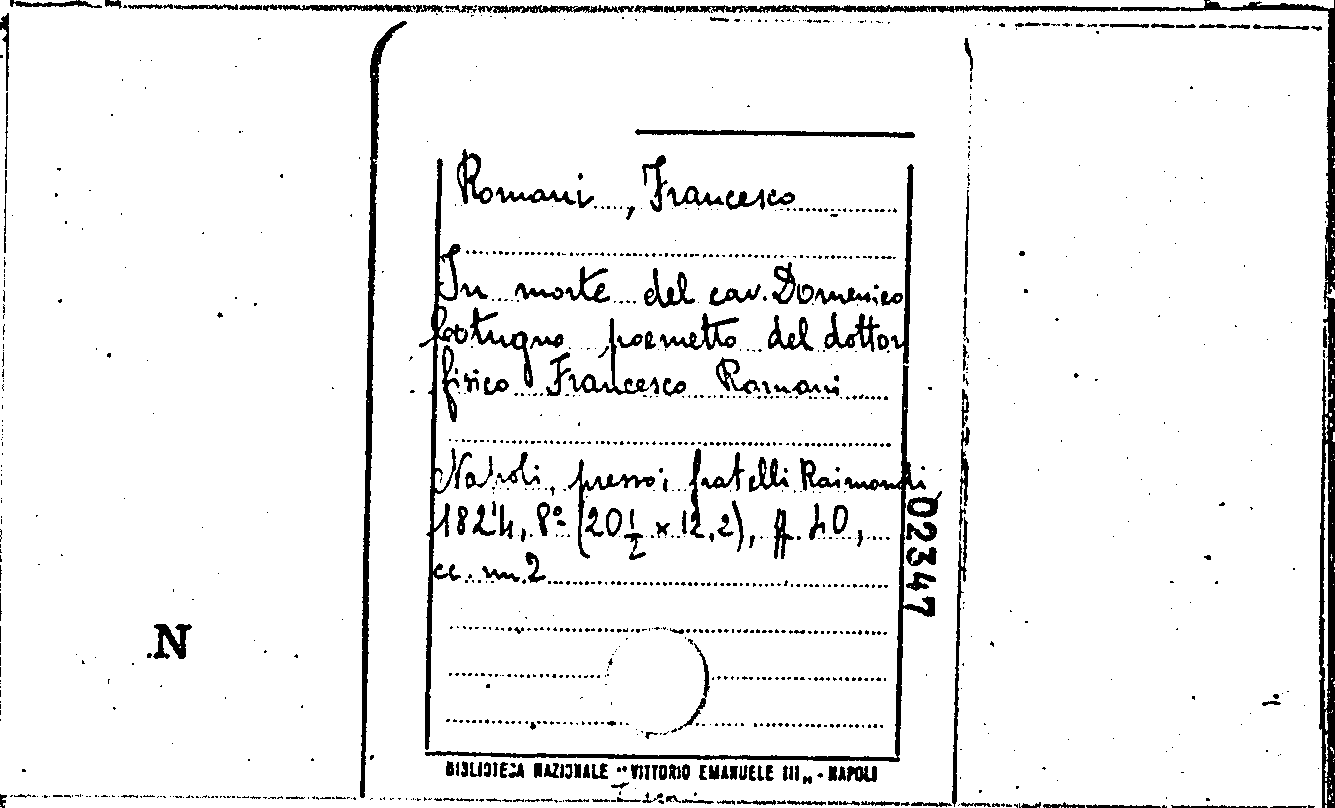 Romani, Francesco
In morte del cav. Domenico
Cotugno poemetto del dottor
fisico Francesco Romani
Napoli, presso i fratelli Raimondi
1824, 8º (20 1/2 x 12,2), pp. 40,
cc. nn. 2
02347
N
BIBLIOTECA NAZIONALE "VITTORIO EMANUELE III„ - NAPOLI